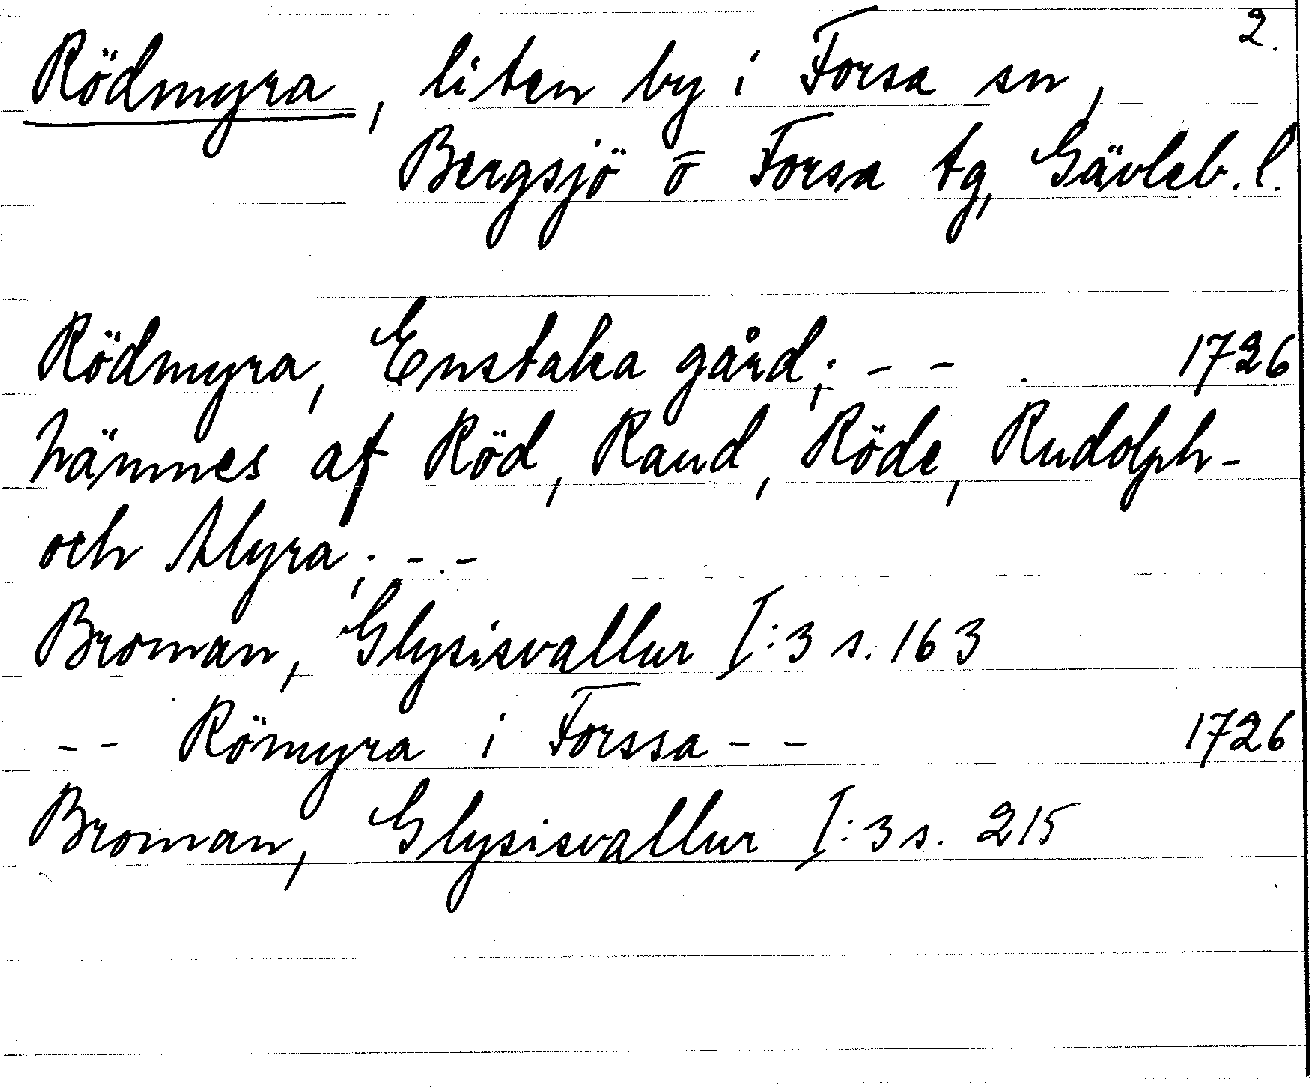 2.
Rödmyra, liten by i Forsa sn,
Bergsjö o Forsa tg, Gävleb. l.
Rödmyra, Enstaka gård; - - . 1726
hämnes af Röd, Raud, Röde, Rudolph-
och Myra; - . -
Broman, Glysisvallur I:3 s. 163
- - Römyra i Forssa - - 1726
Broman, Glysisvallur I:3 s. 215